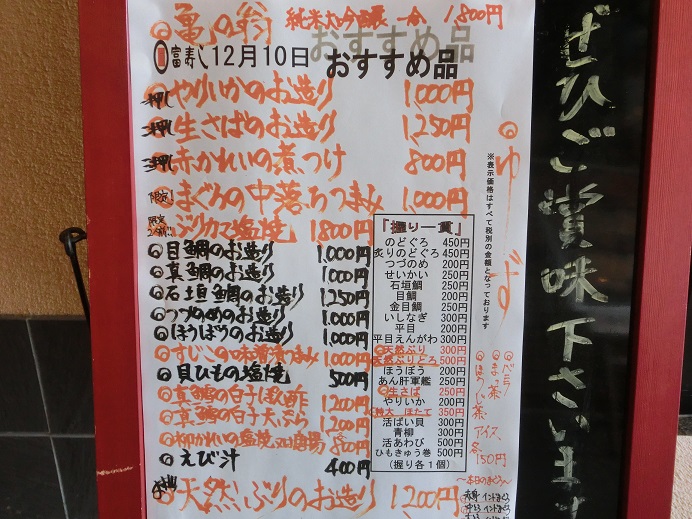 亀の翁 純米大吟醸 一合 1,800円
おすすめ品
富寿し 12月10日 おすすめ品
一押し やりいかのお造り 1,000円
二押し 生さばのお造り 1,250円
三押し 赤かれいの煮つけ 800円
限定! まぐろの中落ちつまみ 1,000円
ブリカマ塩焼 1800円
目鯛のお造り 1,000円
真鯛のお造り 1,000円
石垣鯛のお造り 1,250円
つづのめのお造り 1,000円
ほうぼうのお造り 1,000円
すじこの味噌漬つまみ 1,000円
貝ひもの塩焼 500円
真鱈の白子ぽん酢 1200円
真鱈の白子天ぷら 1,200円
柳かれいの塩焼 800円
えび汁 400円
天然ぶりのお造り 1200円
『握り一貫』
のどぐろ 450円
炙りのどぐろ 450円
つづのめ 200円
せいかい 250円
石垣鯛 250円
目鯛 200円
金目鯛 250円
いしなぎ 300円
平目 200円
平目えんがわ 300円
天然ぶり 300円
天然ぶりとろ 500円
ほうぼう 200円
あん肝軍艦 250円
生さば 250円
やりいか 200円
特大 ほたて 350円
活ばい貝 300円
青柳 300円
活あわび 500円
ひもきゅう巻 500円
(握り各1個)
※表示価格はすべて税別の金額となっております
ゆず
バニラ
まっ茶
ほうじ茶
アイス
各150円
〜本日のまぐろ〜
ぜひご賞味下さいます